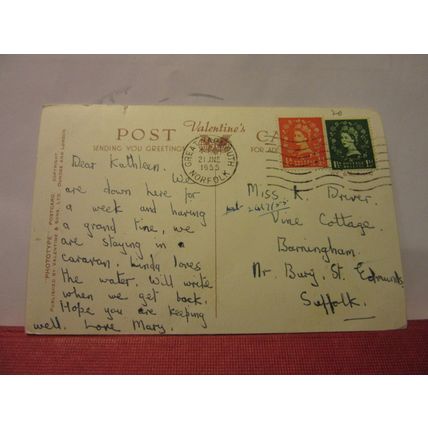 POST Valentine's CA
SENDING YOU GREETINGS
FOR AD
"PHOTOTYPE" POSTCARD.
PUBLISHED BY VALENTINE & SONS, LTD. DUNDEE AND LONDON
COPYRIGHT
GREAT YARMOUTH
21 JNE
1955
NORFOLK
Dear Kathleen. We
are down here for
a week and having
a grand time, we
are staying in a
caravan, Linda loves
the water. Will write
when we get back.
Hope you are keeping
well. Love Mary.
Miss K. Drever.
Vine Cottage.
Barningham.
Nr Bury. St. Edmunds
Suffolk.
20